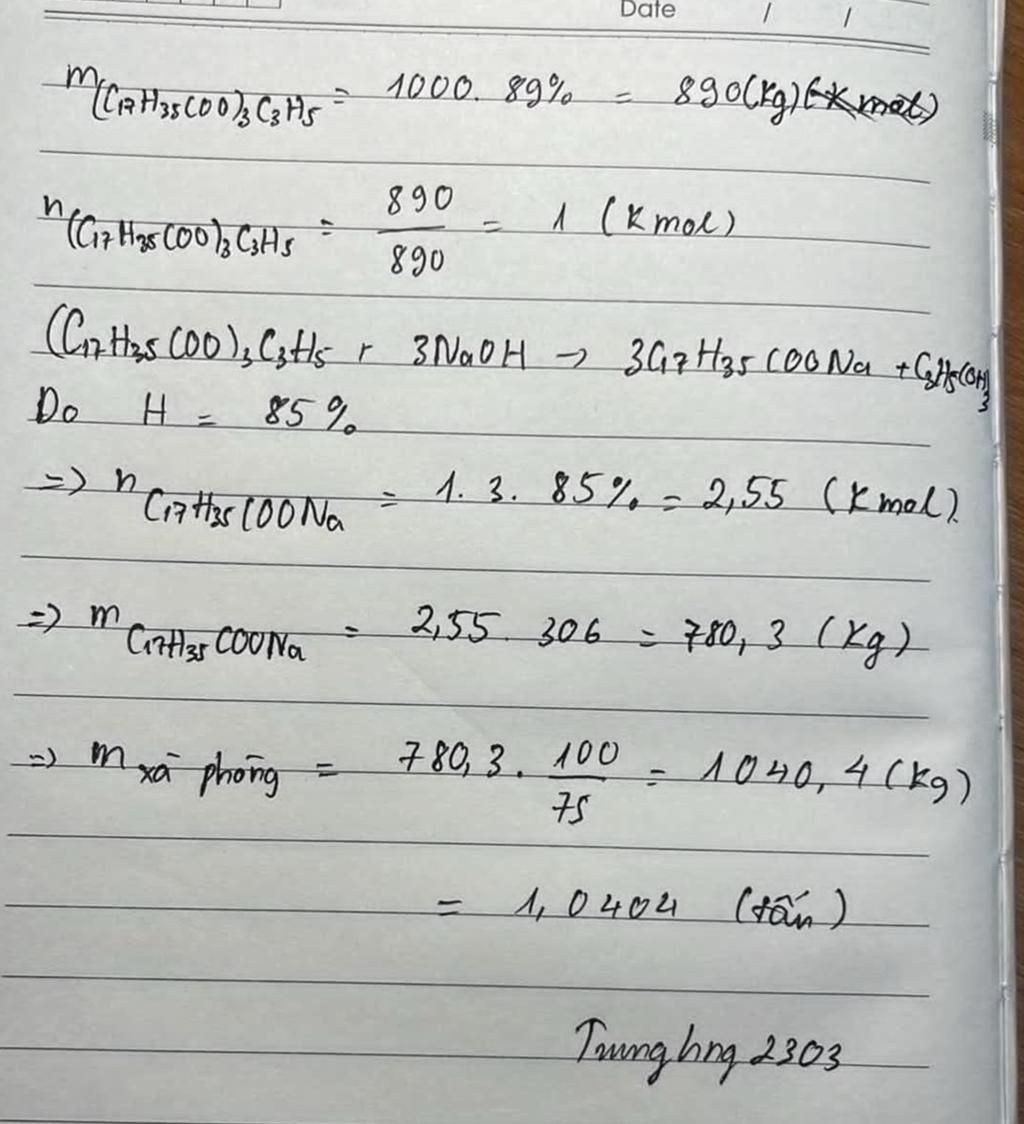 Date / /
m(C17H35COO)3C3H5 = 1000. 89% = 890(kg)
n(C17H35COO)3C3H5 = 890/890 = 1 (Kmol)
(C17H35COO)3C3H5 + 3NaOH → 3C17H35COONa + C3H5(OH)3
Do H = 85%
=> n C17H35COONa = 1. 3. 85% = 2,55 (Kmol).
=> m C17H35COONa = 2,55. 306 = 780,3 (Kg)
=> m xà phòng = 780,3. 100/75 = 1040,4 (Kg)
= 1,0404 (tấn)
2303